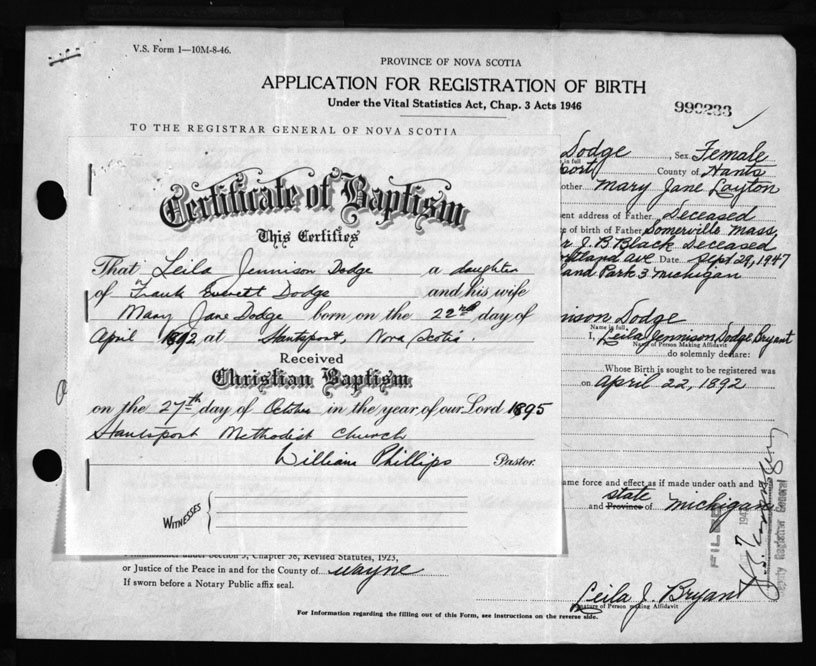 V.S. Form 1—10M-8-46.
PROVINCE OF NOVA SCOTIA
APPLICATION FOR REGISTRATION OF BIRTH
Under the Vital Statistics Act, Chap. 3 Acts 1946
990233
TO THE REGISTRAR GENERAL OF NOVA SCOTIA
Certificate of Baptism
This Certifies
That Leila Jennison Dodge a daughter
of Frank Everett Dodge and his wife
Mary Jane Dodge born on the 22nd day of
April 1892 at Hantsport, Nova Scotia.
Received
Christian Baptism
on the 27th day of October in the year of our Lord 1895
Hantsport Methodist Church
William Phillips Pastor.
WITNESSES
Dodge, Sex Female
in full
port County of Hants
other Mary Jane Layton
ent address of Father Deceased
e of birth of Father Somerville Mass,
r J. B. Black Deceased
land ave Date Sept 29, 1947
and Park 3 Michigan
nison Dodge
Name in full
I, Leila Jennison Dodge Bryant
Name of Person Making Affidavit
do solemnly declare:
Whose Birth is sought to be registered was
on April 22, 1892
ame force and effect as if made under oath and by
state
and Province of Michigan
FILED
1947
Deputy Registrar General
Commissioner under Section 5, Chapter 38, Revised Statutes, 1923,
or Justice of the Peace in and for the County of Wayne
If sworn before a Notary Public affix seal.
Leila J. Bryant
Signature of Person making Affidavit
For Information regarding the filling out of this Form, see instructions on the reverse side.